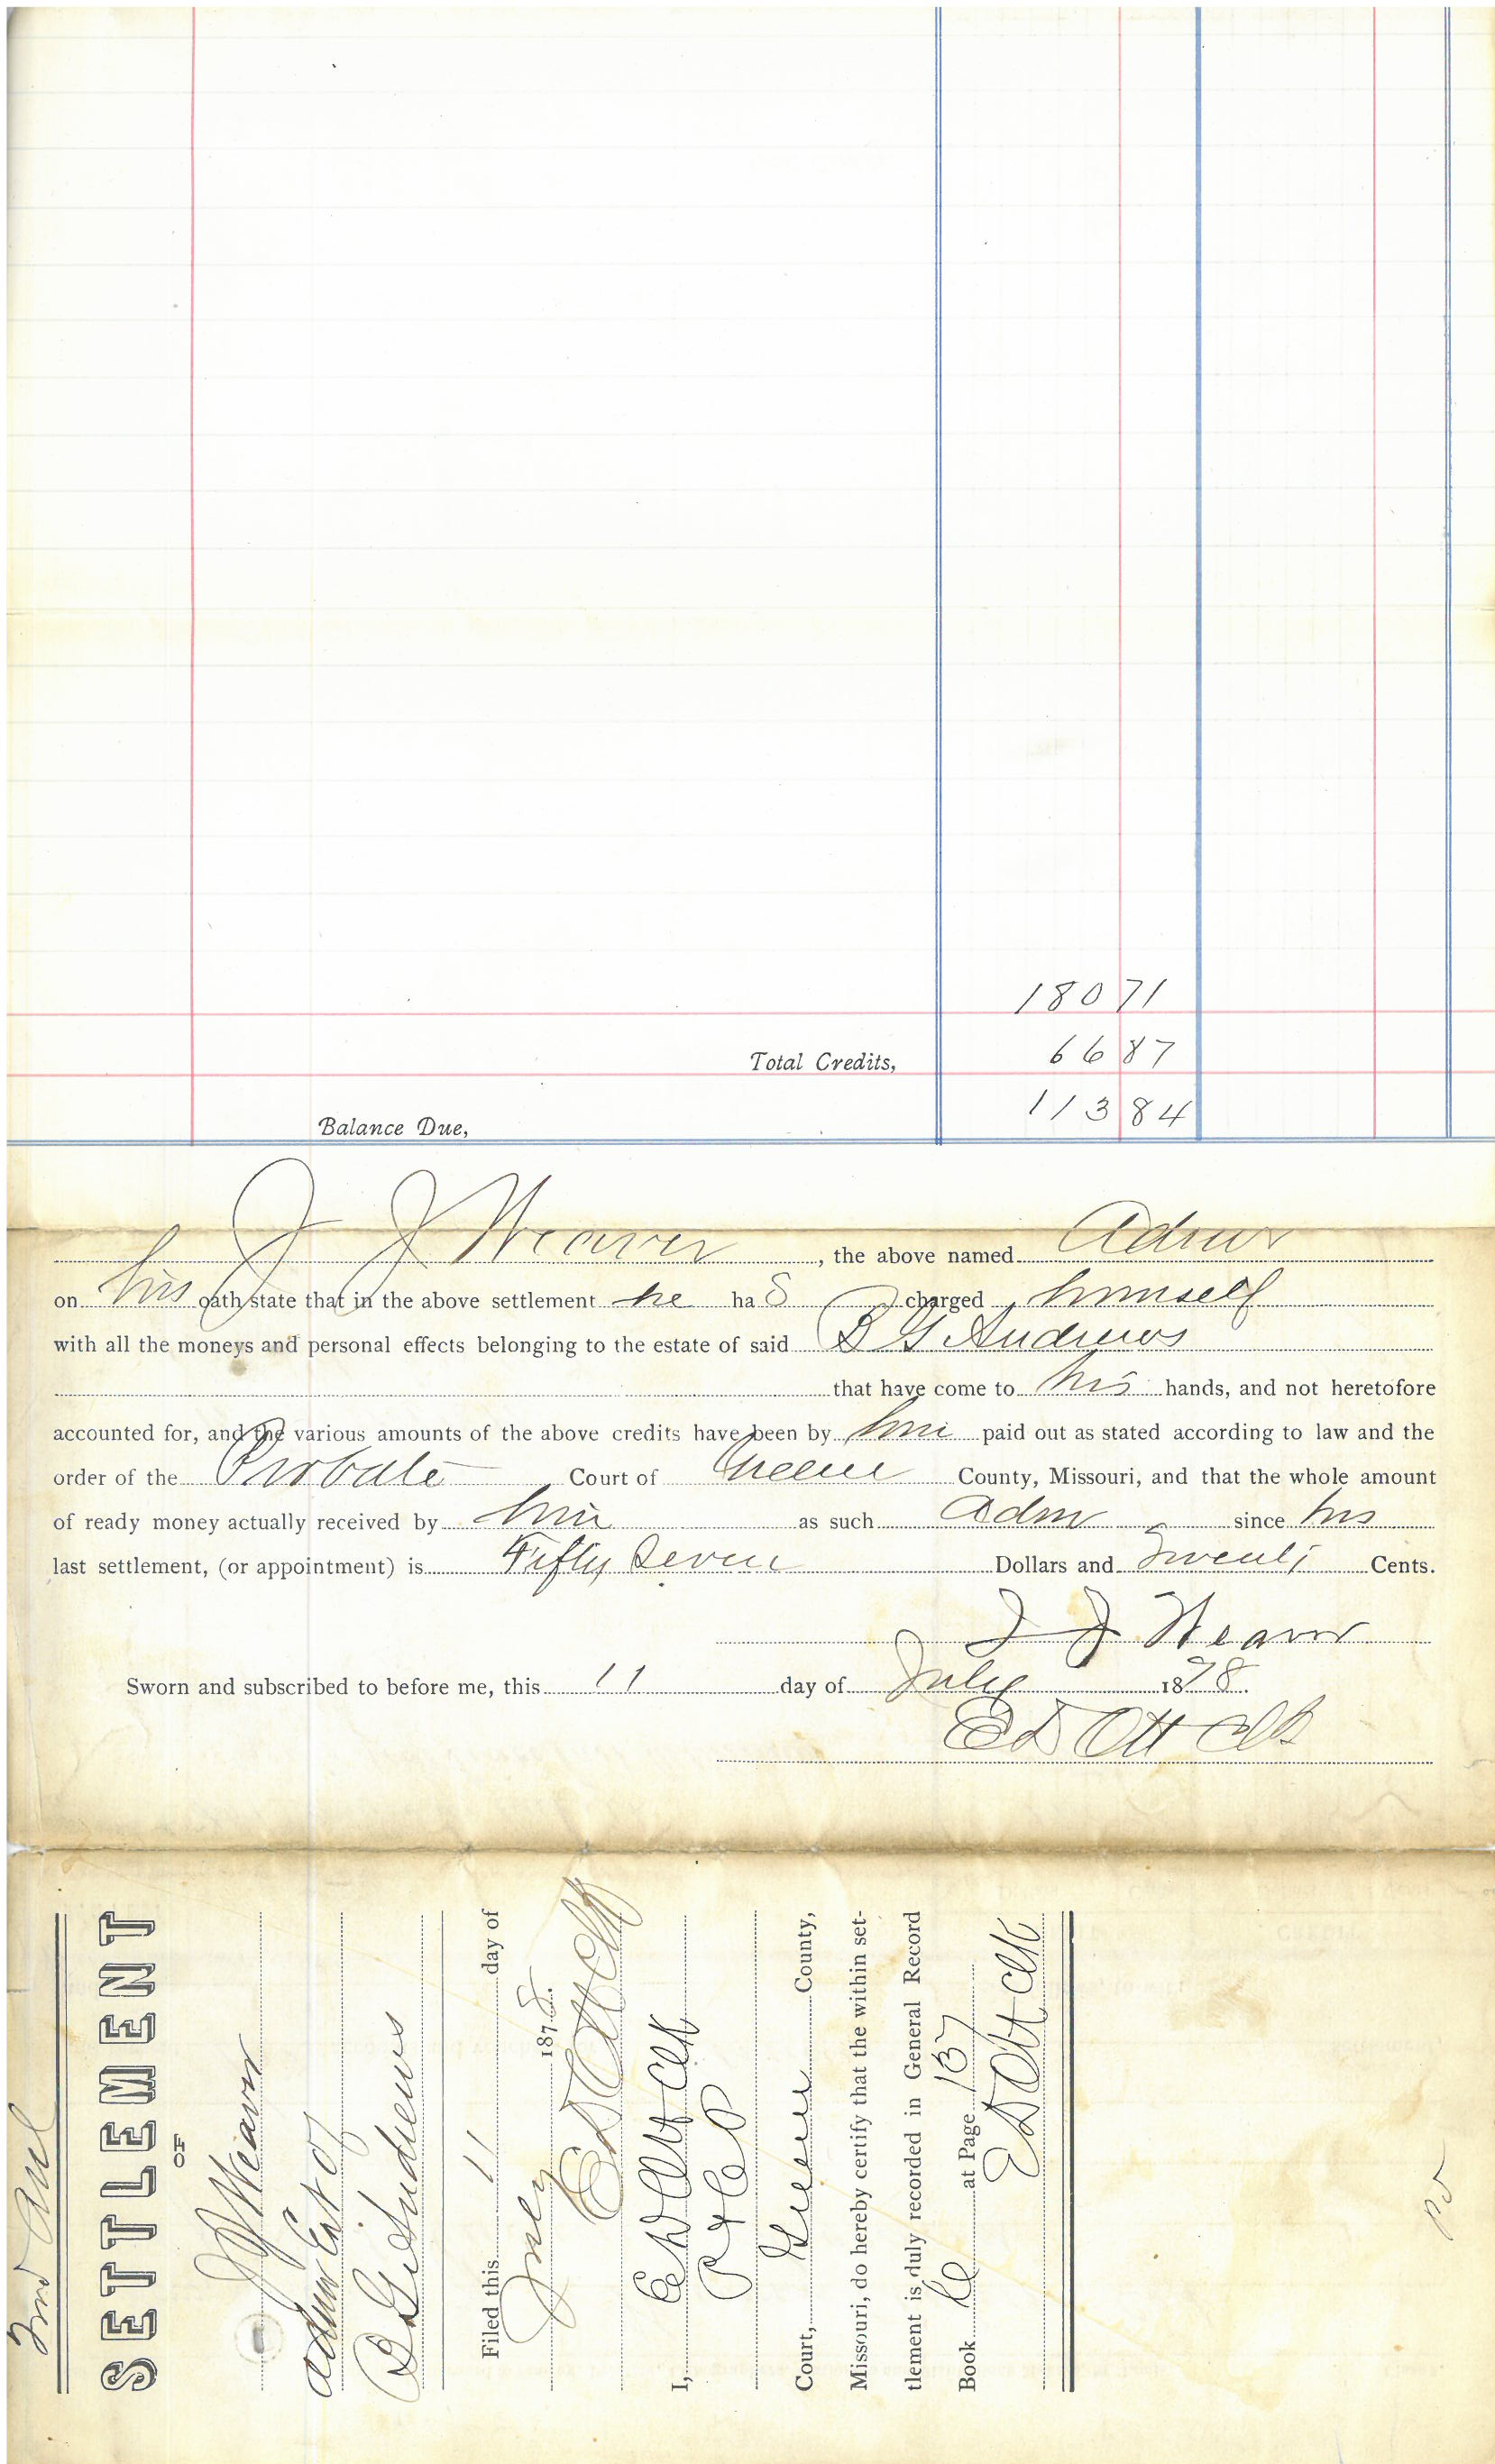 180 71
Total Credits, 66 87
Balance Due, 113 84
J J Weaver, the above named Admr
on his oath state that in the above settlement he has charged himself
with all the moneys and personal effects belonging to the estate of said B G Andrews
that have come to his hands, and not heretofore
accounted for, and the various amounts of the above credits have been by him paid out as stated according to law and the
order of the Probate Court of Greene County, Missouri, and that the whole amount
of ready money actually received by him as such Adm since his
last settlement, (or appointment) is Fifty Seven Dollars and Twenty Cents.
J J Weaver
Sworn and subscribed to before me, this 11 day of July 1878.
E D Ott Clk
SETTLEMENT
OF
J J Weaver
Admr Est of
B G Andrews
Filed this 11 day of
July 1878.
E D Ott Clk
I, E D Ott Clk
Court, Greene County,
Missouri, do hereby certify that the within set-
tlement is duly recorded in General Record
Book at Page 137
E D Ott Clk